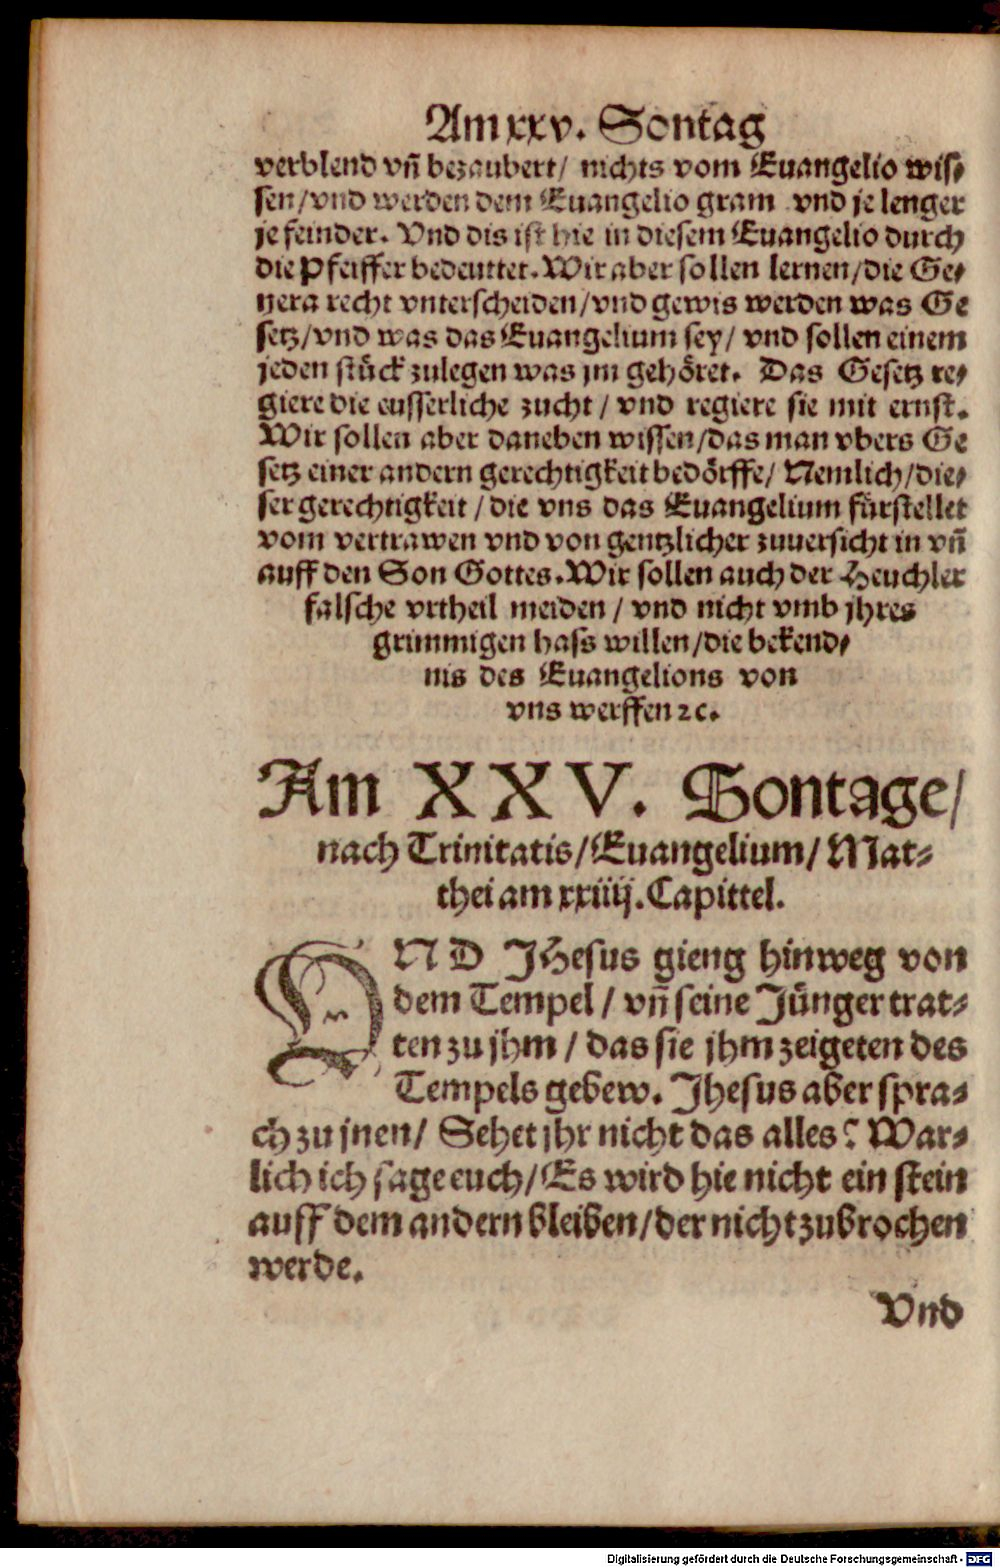 Am xxv. Sontag
verblend vñ bezaubert/ nichts vom Euangelio wis⸗
sen/vnd werden dem Euangelio gram vnd je lenger
je feinder. Vnd dis ist hie in diesem Euangelio durch
die Pfeiffer bedeuttet. Wir aber sollen lernen/die Ge⸗
nera recht vnterscheiden/vnd gewis werden was Ge
setz/vnd was das Euangelium sey/ vnd sollen einem
jeden stück zulegen was jm gehöret. Das Gesetz re⸗
giere die eusserliche zucht/ vnd regiere sie mit ernst.
Wir sollen aber daneben wissen/das man vbers Ge
setz einer andern gerechtigkeit bedörffe/ Nemlich/die⸗
ser gerechtigkeit/die vns das Euangelium fürstellet
vom vertrawen vnd von gentzlicher zuuersicht in vñ
auff den Son Gottes. Wir sollen auch der Heuchler
falsche vrtheil meiden/ vnd nicht vmb jhres
grimmigen hass willen/die bekend⸗
nis des Euangelions von
vns werffen ꝛc.
Am XXV. Sontage/
nach Trinitatis/Euangelium/Mat⸗
thei am xxiiij. Capittel.
VND JHesus gieng hinweg von
dem Tempel/ vñ seine Jünger trat⸗
ten zu jhm/ das sie jhm zeigeten des
Tempels gebew. Jhesus aber spra⸗
ch zu jnen/ Sehet jhr nicht das alles? War⸗
lich ich sage euch/Es wird hie nicht ein stein
auff dem andern bleiben/der nicht zubrochen
werde.
Vnd
Digitalisierung gefördert durch die Deutsche Forschungsgemeinschaft - DFG